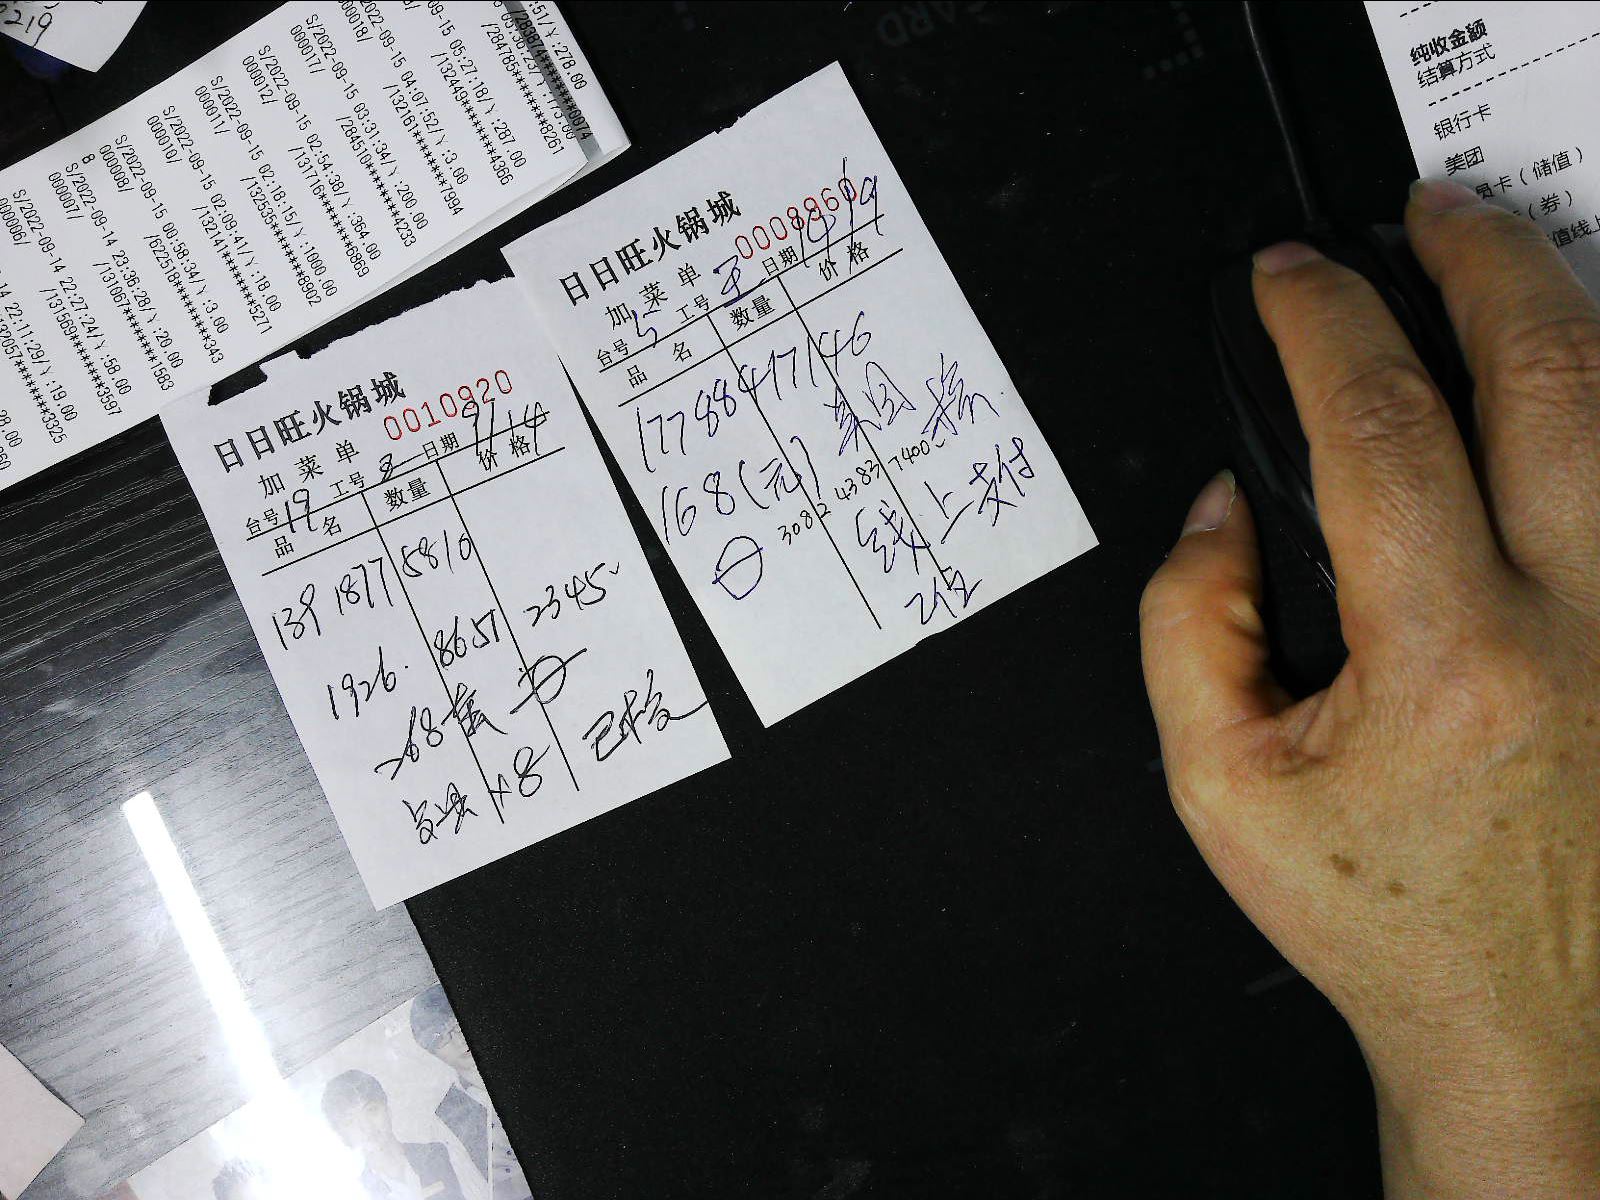 219
:51/Y:278.00
/283874*********0074
05:36:23/Y:773.00
/284785******8261
2022-09-15 05:27:18/Y:287.00
000018/ /132449******4366
S/2022-09-15 04:07:52/Y:3.00
000017/ /132161******7994
S/2022-09-15 03:31:34/Y:200.00
/284510******4233
S/2022-09-15 02:54:38/Y:364.00
000012/ /131716******6869
S/2022-09-15 02:18:15/Y:1000.00
000011/ /132535******8902
S/2022-09-15 02:09:41/Y:18.00
000010/ /132141******5271
S/2022-09-15 00:58:34/Y:3.00
000008/ /622518*********343
8
S/2022-09-14 23:36:28/Y:20.00
000007/ /131067******1583
S/2022-09-14 22:27:24/Y:58.00
000006/ /131569******3597
14 22:11:29/Y:19.00
/132057******3325
纯收金额
结算方式
银行卡
美团
员卡(储值)
(券)
值线上
日日旺火锅城
0008960
加菜单
台号 5 工号 王 日期 19
品名 数量 价格
17788477146
168(元) 美团 核
3082 4383 7400
线上支付
2位
日日旺火锅城
0010920
加菜单
台号 19 工号 王 日期 9/14
品名 数量 价格
139 1877 5810
1926. 8651 2345
268套
×8 已核